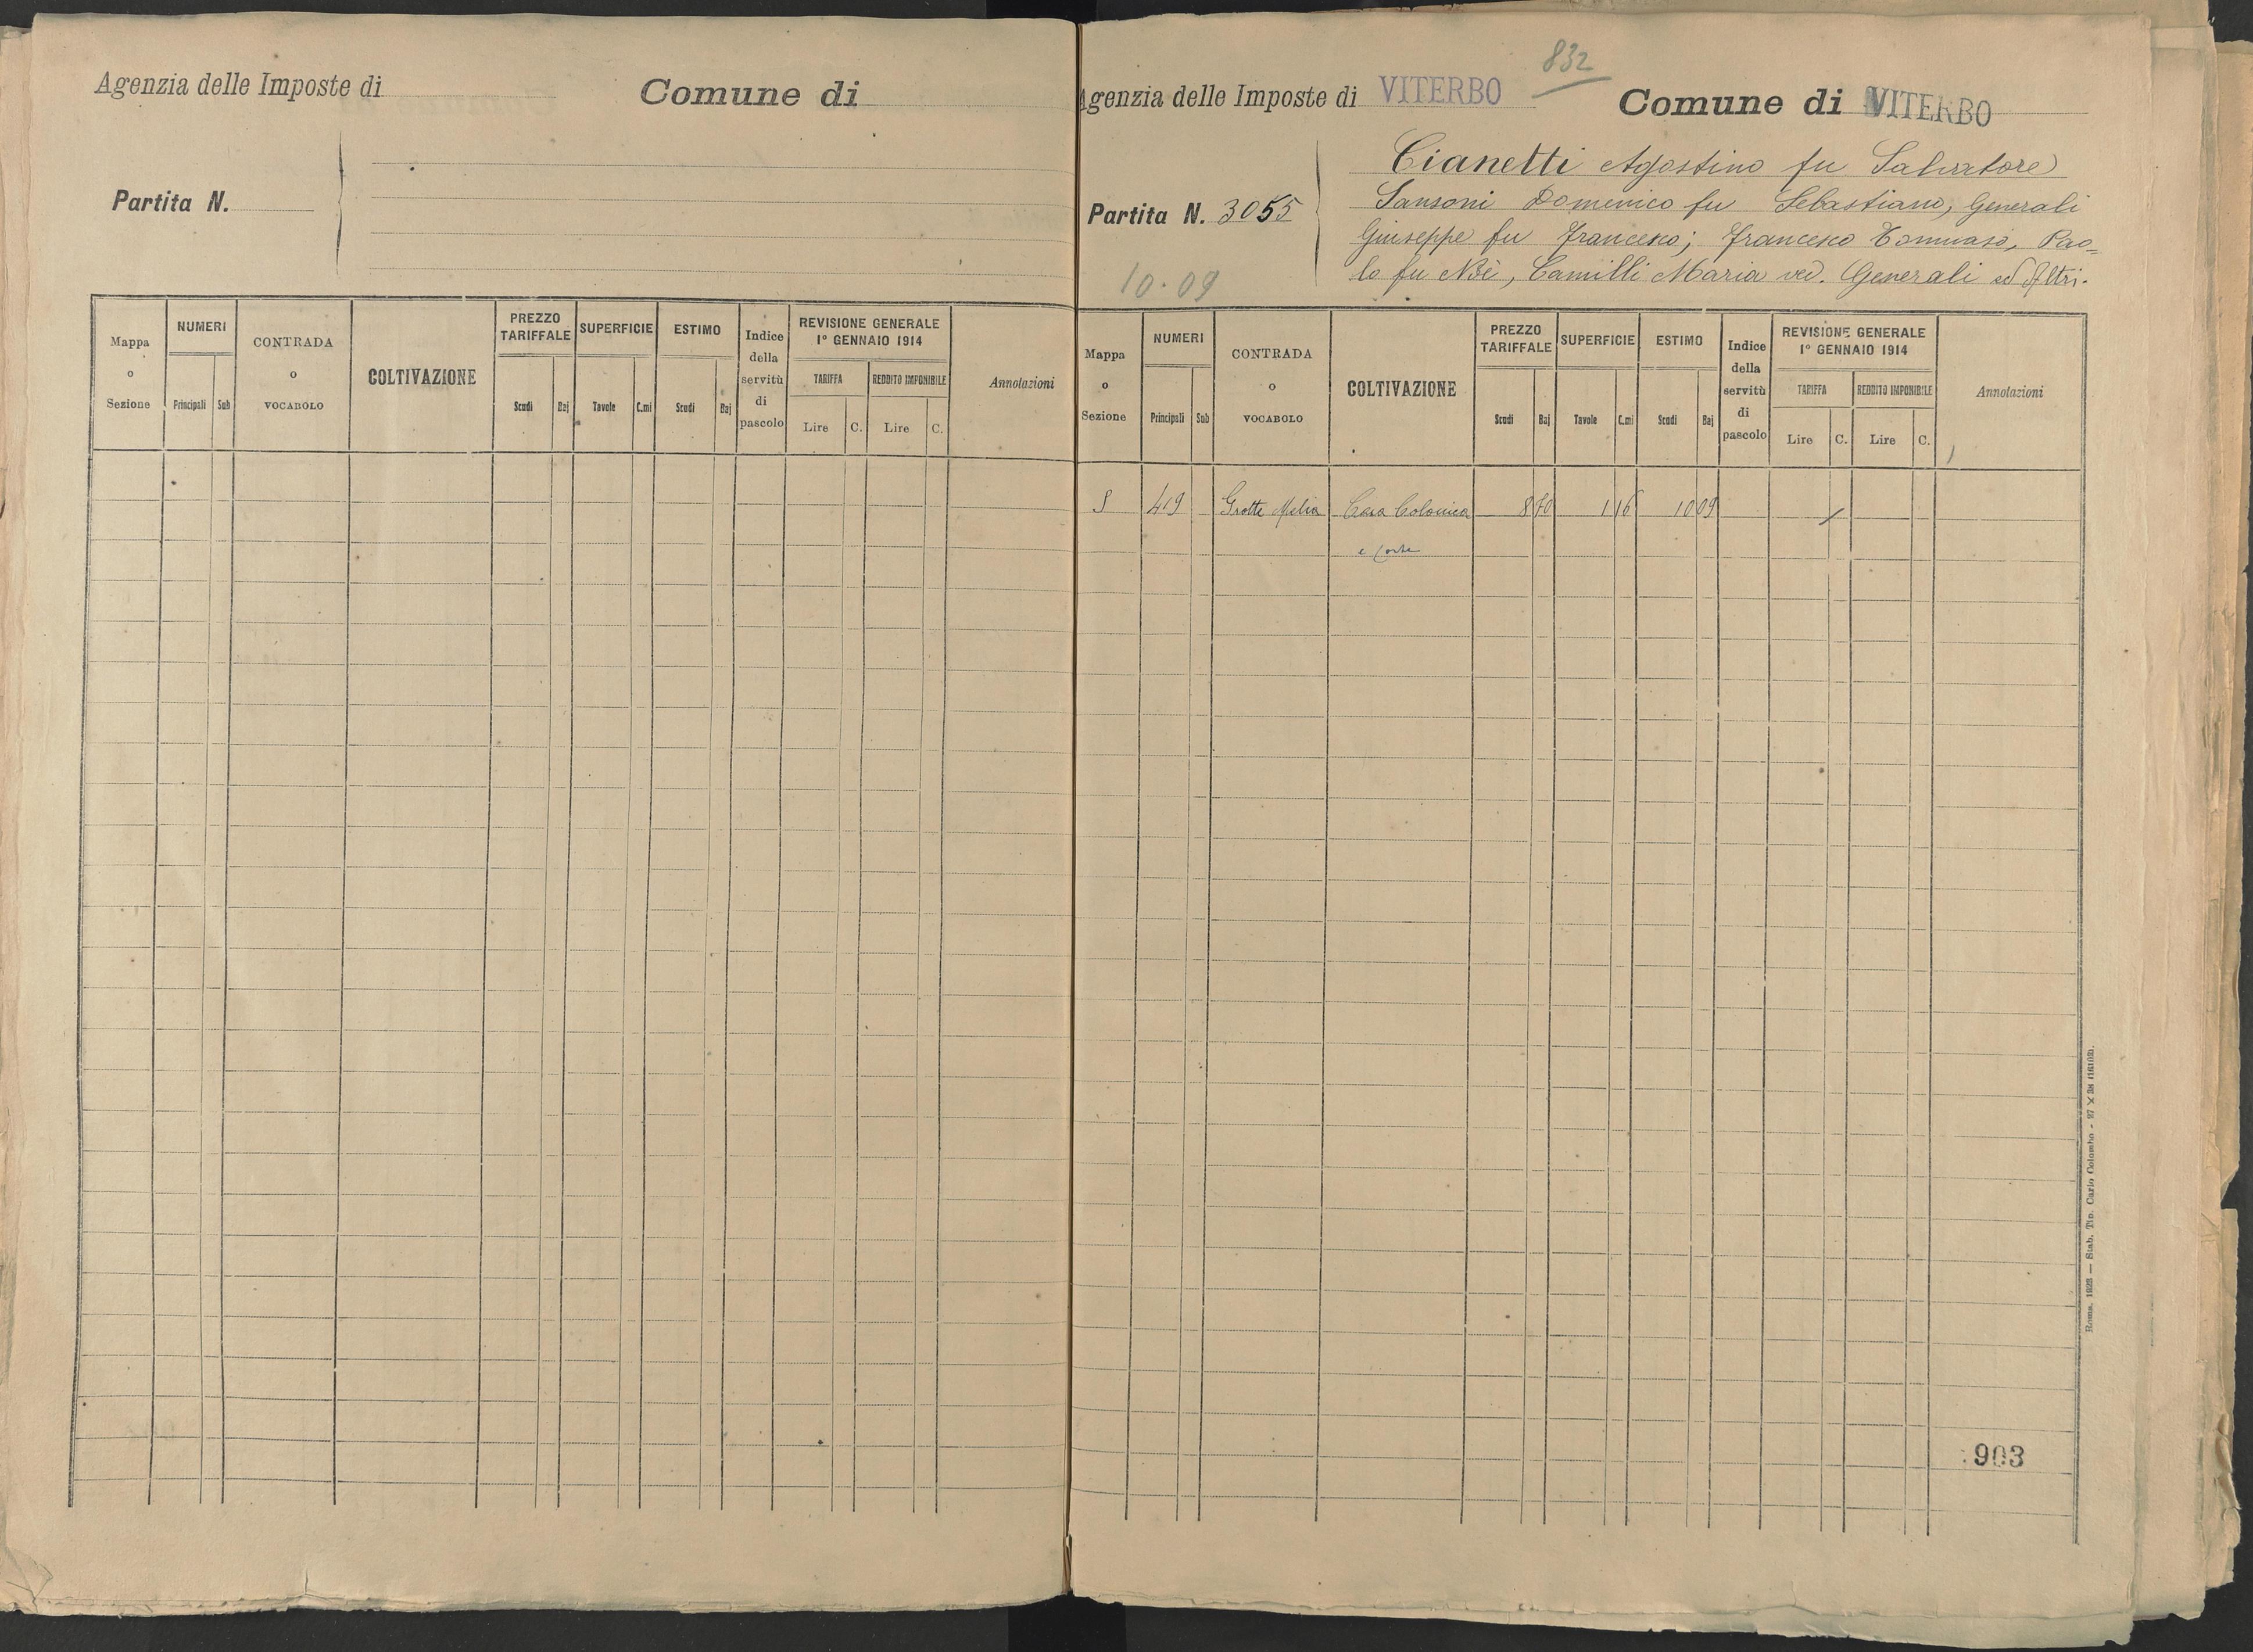 Agenzia delle Imposte di
Comune di
Partita N.
Mappa o Sezione
NUMERI
Principali Sub
CONTRADA o VOCABOLO
COLTIVAZIONE
PREZZO TARIFFALE
Scudi Baj
SUPERFICIE
Tavole C.mi
ESTIMO
Scudi Baj
Indice della servitù di pascolo
REVISIONE GENERALE
1º GENNAIO 1914
TARIFFA
Lire C.
REDDITO IMPONIBILE
Lire C.
Annotazioni
832
Agenzia delle Imposte di VITERBO
Comune di VITERBO
Partita N. 3055
Cianetti Agostino fu Salvatore
Sansoni Domenico fu Sebastiano, Generali
Giuseppe fu Francesco; Francesco Tommaso, Pao=
lo fu Noè, Camilli Maria ved. Generali ed Altri.
10.09
Mappa o Sezione
NUMERI
Principali Sub
CONTRADA o VOCABOLO
COLTIVAZIONE
PREZZO TARIFFALE
Scudi Baj
SUPERFICIE
Tavole C.mi
ESTIMO
Scudi Baj
Indice della servitù di pascolo
REVISIONE GENERALE
1º GENNAIO 1914
TARIFFA
Lire C.
REDDITO IMPONIBILE
Lire C.
Annotazioni
419 Grotte Casa Colonica 8 70 1 16 10 09
e Corte
Roma, 1923 — Stab. Tip. Carlo Colombo
903